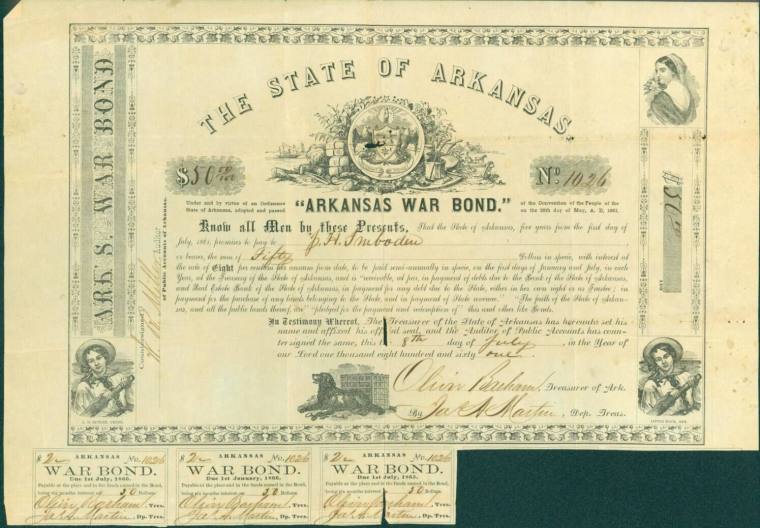 THE STATE OF ARKANSAS,
ARK'S. WAR BOND
Countersigned
Auditor
of Public Accounts of Arkansas.
$50
No. 1026
$50
Under and by virtue of an Ordinance
State of Arkansas, adopted and passed
"ARKANSAS WAR BOND."
of the Convention of the People of the
on the 28th day of May, A. D. 1861.
Know all Men by these Presents, That the State of Arkansas, five years from the first day of
July, 1861, promises to pay to J. H. Imboden
or bearer, the sum of Fifty Dollars in specie, with interest at
the rate of Eight per centum per annum from date, to be paid semi-annually in specie, on the first days of January and July, in each
Year, at the Treasury of the State of Arkansas, and is "receivable, at par, in payment of debts due to the Bank of the State of Arkansas,
and Real Estate Bank of the State of Arkansas, in payment for any debt due to the State, either in his own right or as Trustee; in
payment for the purchase of any lands belonging to the State, and in payment of State revenue." "The faith of the State of Arkan-
sas, and all the public bonds thereof, are "pledged for the payment and redemption of" this and other like Bonds.
In Testimony Whereof, The Treasurer of the State of Arkansas has hereunto set his
name and affixed his official seal, and the Auditor of Public Accounts has coun-
tersigned the same, this 8th day of July, in the Year of
our Lord one thousand eight hundred and sixty one.
Oliver Basham, Treasurer of Ark.
By Jas A Martin, Dep. Treas.
LITTLE ROCK, ARK.
$2 ARKANSAS No. 1026
WAR BOND.
Due 1st July, 1866.
Payable at the place and in the funds named in the Bond,
being six months interest on 50 Dollars.
Oliver Basham, Treas.
Jas A. Martin, Dp. Tres.
$2 ARKANSAS No. 1026
WAR BOND.
Due 1st January, 1866.
Payable at the place and in the funds named in the Bond,
being six months interest on 50 Dollars.
Oliver Basham, Treas.
Jas A. Martin, Dp. Tres.
$2 ARKANSAS No. 1026
WAR BOND.
Due 1st July, 1865.
Payable at the place and in the funds named in the Bond,
being six months interest on 50 Dollars.
Oliver Basham, Treas.
Jas A. Martin, Dp. Tres.